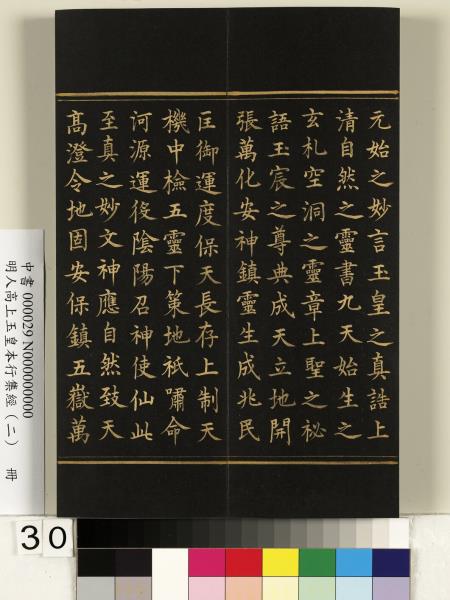 元始之妙言玉皇之真誥上
清自然之靈書九天始生之
玄札空洞之靈章上聖之祕
語玉宸之尊典成天立地開
張萬化安神鎮靈生成兆民
匡御運度保天長存上制天
機中檢五靈下策地祇嘯命
河源運役陰陽召神使仙此
至真之妙文神應自然致天
高澄令地固安保鎮五嶽萬
中書 000029 N000000000
明人高上玉皇本行集經(二) 冊
30